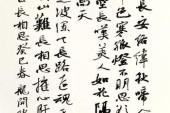 長安絡緯秋啼
色寒孤燈不明思
空長嘆美人如花隔
高天
波瀾天長路遠魂
山難長相思摧心肝
白長相思癸巳春